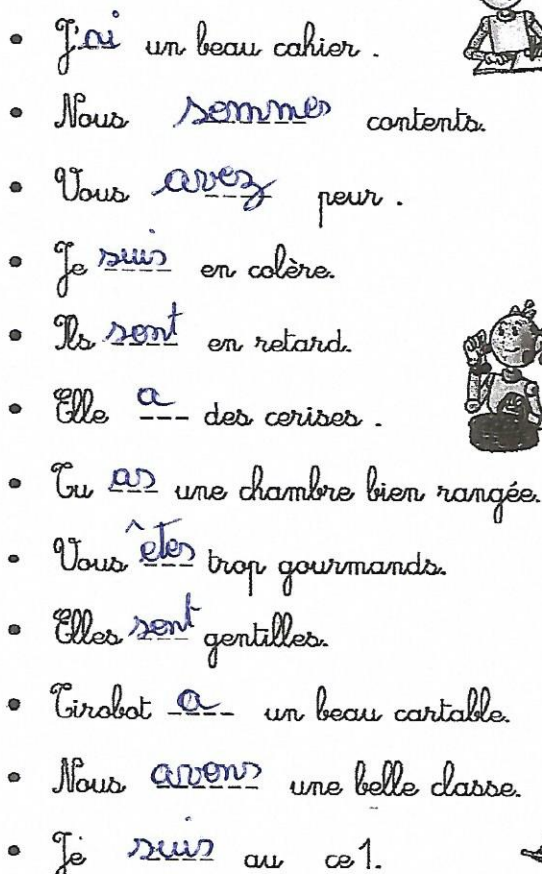 • J'ai un beau cahier.
• Nous sommes contents.
• Vous avez peur.
• Je suis en colère.
• Ils sont en retard.
• Elle a des cerises.
• Tu as une chambre bien rangée.
• Vous êtes trop gourmands.
• Elles sont gentilles.
• Tirobot a un beau cartable.
• Nous avons une belle classe.
• Je suis au ce1.